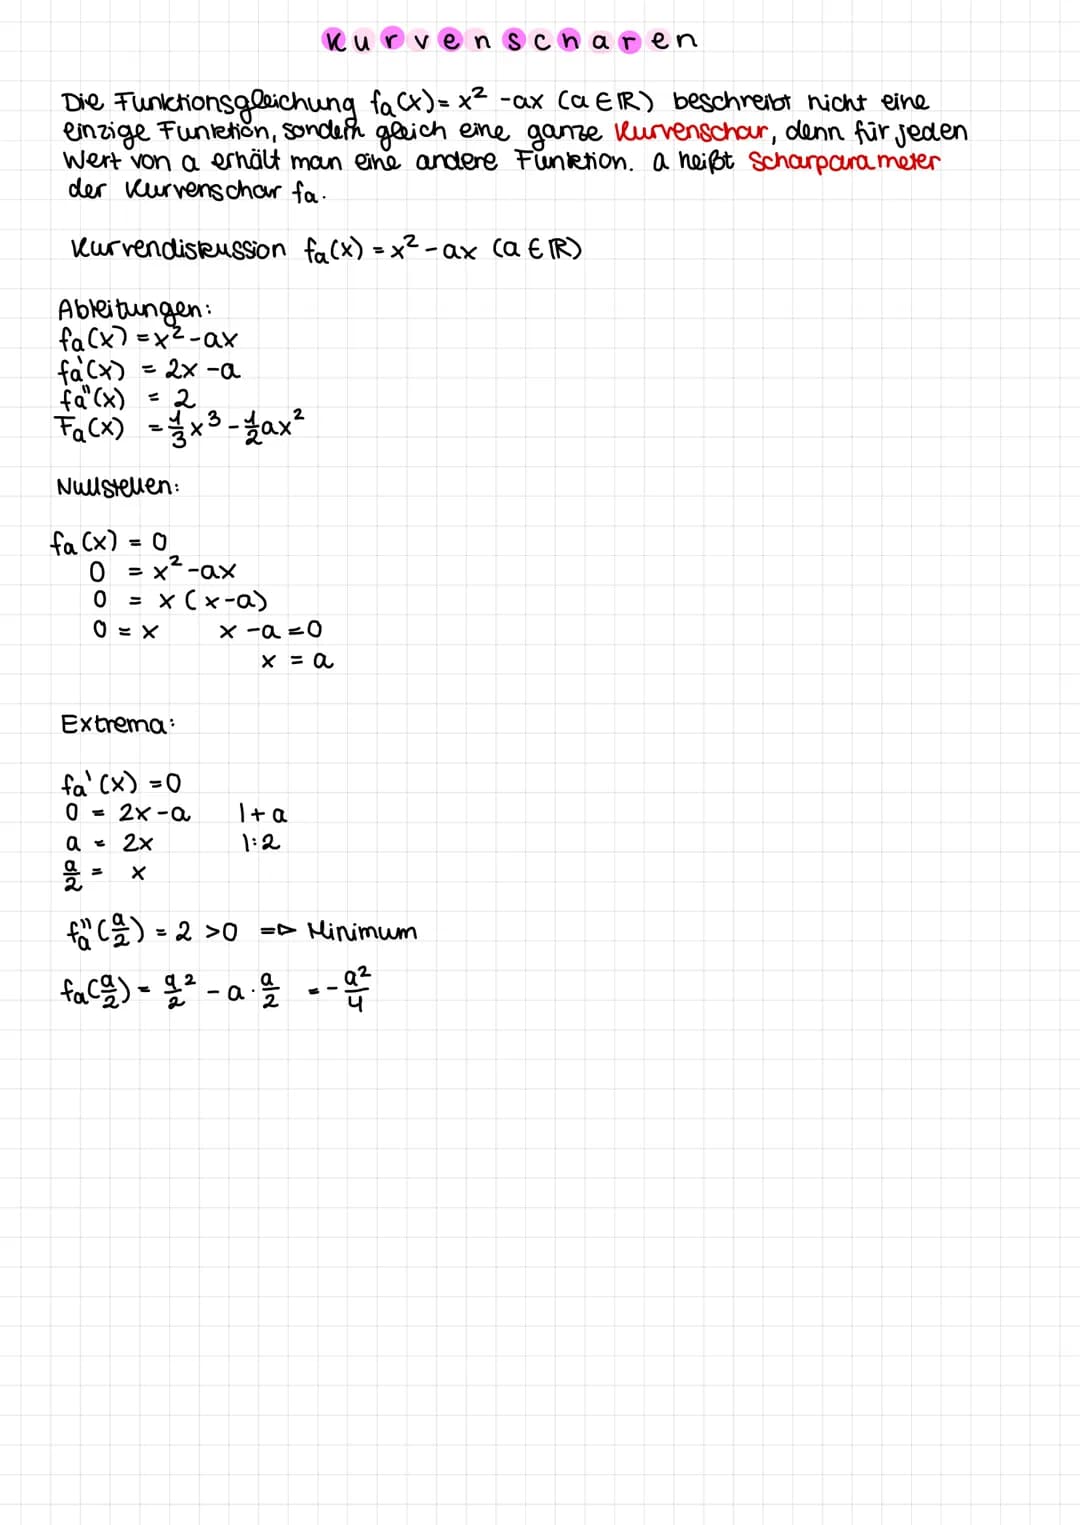 Kurvenscharen
Die Funktionsgleichung fa(x) = x² - ax (a ∈ ℝ) beschreibt nicht eine
einzige Funktion, sondern gleich eine ganze Kurvenschar, denn für jeden
Wert von a erhält man eine andere Funktion. a heißt Scharparameter
der Kurvenschar fa.
Kurvendiskussion fa(x) = x² - ax (a ∈ ℝ)
Ableitungen:
fa(x) = x² - ax
fa'(x) = 2x - a
fa"(x) = 2
Fa(x) = 1/3 x³ - 1/2 ax²
Nullstellen:
fa(x) = 0
0 = x² - ax
0 = x (x - a)
0 = x x - a = 0
x = a
Extrema:
fa'(x) = 0
0 = 2x - a | + a
a = 2x | : 2
a/2 = x
fa"(a/2) = 2 > 0 => Minimum
fa(a/2) = a/2² - a · a/2 = - a²/4